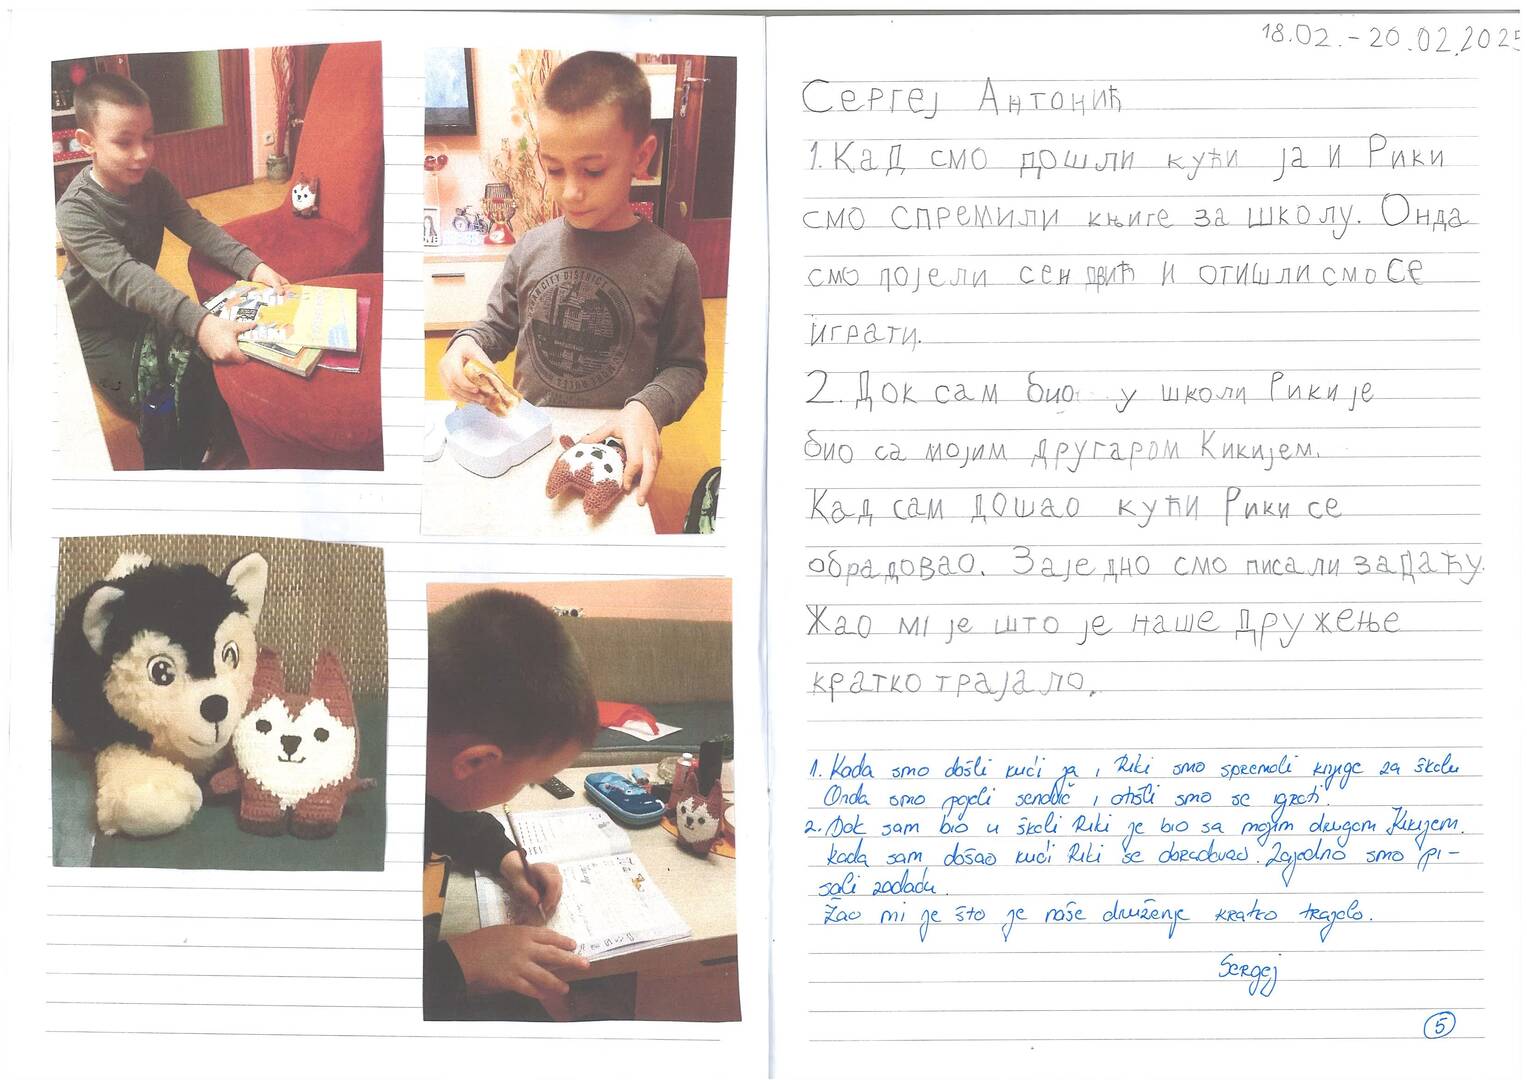 18.02.-20.02.2025
Сергеј Антонић
1. Кад смо дошли кући ја и Рики
смо спремили књиге за школу. Онда
смо појели сендвић и отишли смо се
играти.
2. Док сам био у школи Рики је
био са мојим другаром Кикијем.
Кад сам дошао кући Рики се
обрадовао. Заједно смо писали задаћу.
Жао ми је што је наше дружење
кратко трајало.
1. Kada smo došli kući ja i Riki smo spremali knjige za školu
Onda smo pojeli sendvič i otišli smo se igrati.
2. Dok sam bio u školi Riki je bio sa mojim drugom Kikijem.
Kada sam došao kući Riki se obradovao. Zajedno smo pi-
sali zadaću.
Žao mi je što je naše druženje kratko trajalo.
Sergej
5